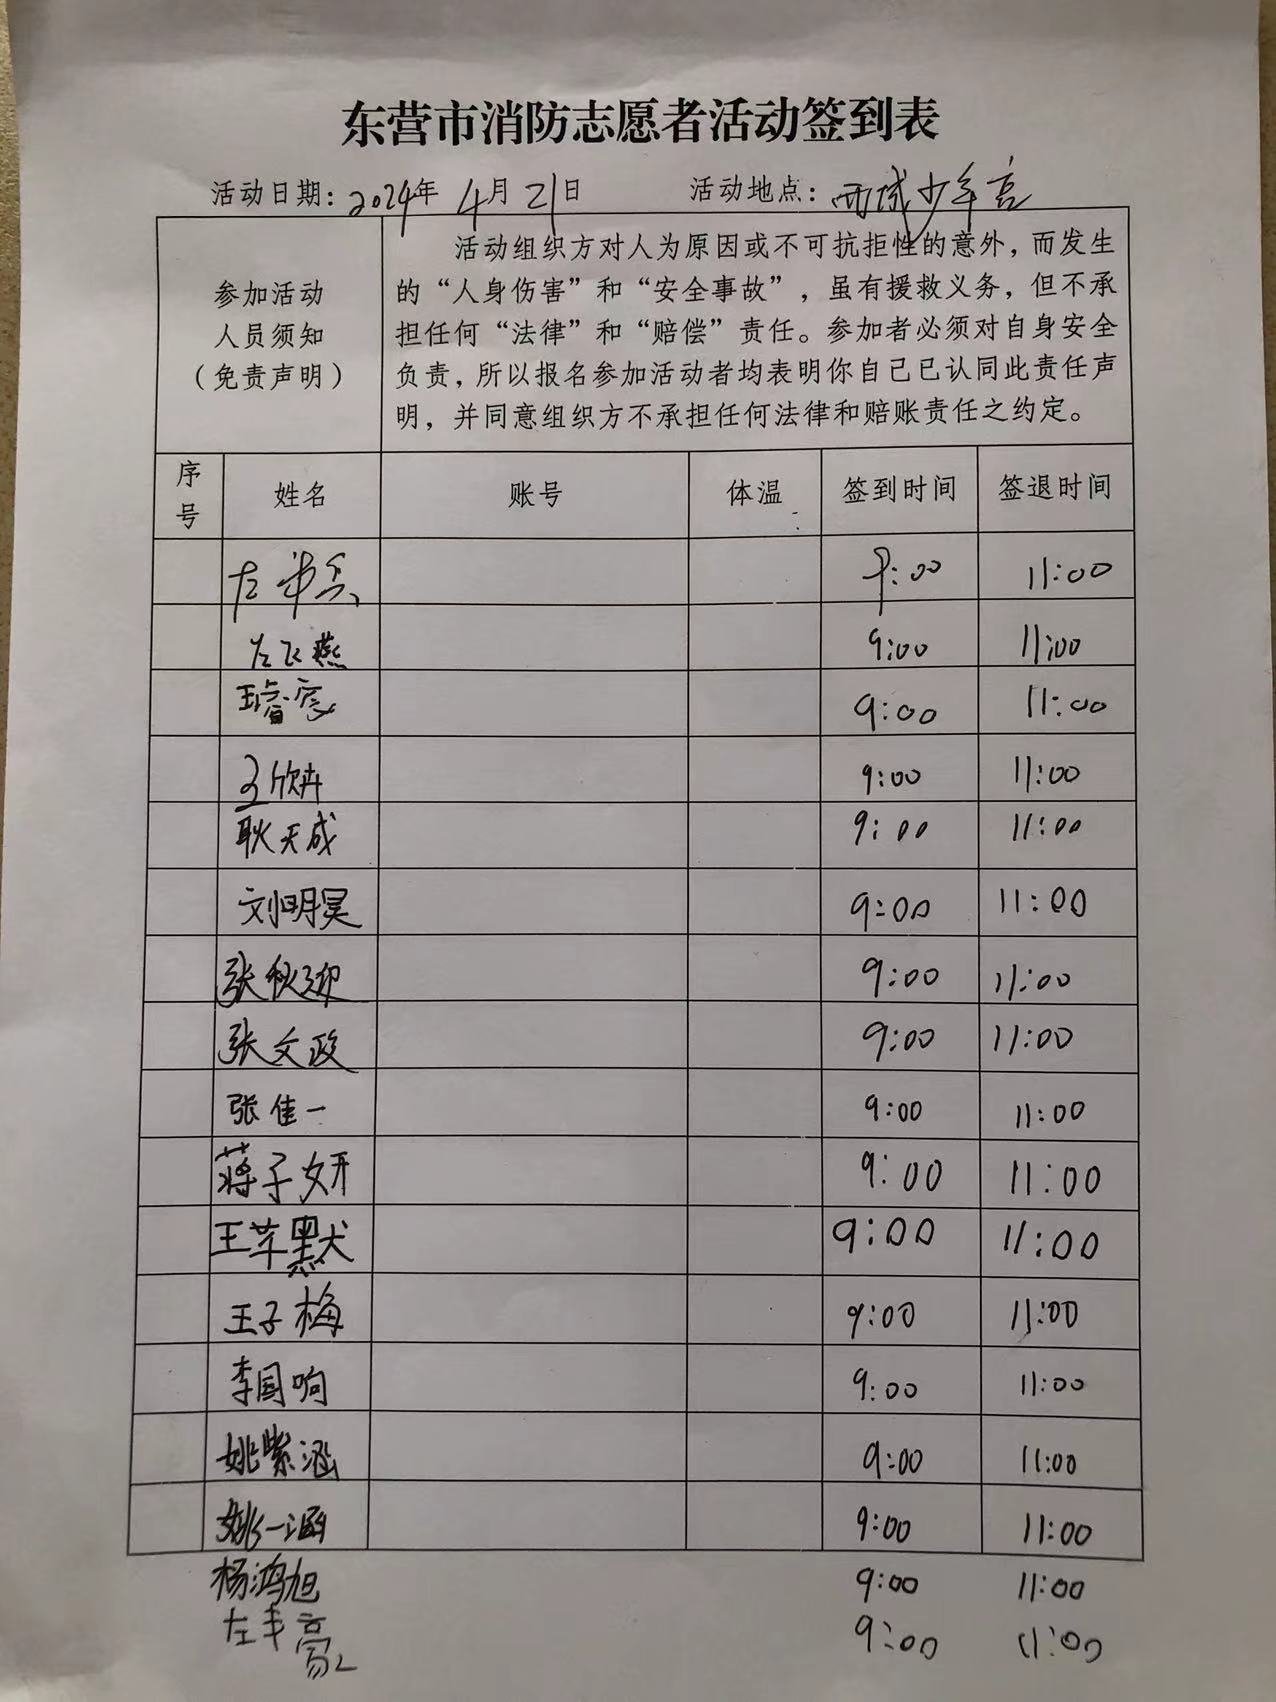 东营市消防志愿者活动签到表
活动日期：2024年 4月21日 活动地点：西城少年宫
参加活动
人员须知
（免责声明）
活动组织方对人为原因或不可抗拒性的意外，而发生
的“人身伤害”和“安全事故”，虽有援救义务，但不承
担任何“法律”和“赔偿”责任。参加者必须对自身安全
负责，所以报名参加活动者均表明你自己已认同此责任声
明，并同意组织方不承担任何法律和赔账责任之约定。
序号 姓名 账号 体温 签到时间 签退时间
左 9:00 11:00
左飞燕 9:00 11:00
9:00 11:00
王欣卉 9:00 11:00
耿天成 9:00 11:00
刘明昊 9:00 11:00
张秋 9:00 11:00
张文政 9:00 11:00
张佳一 9:00 11:00
蒋子妍 9:00 11:00
王苹默 9:00 11:00
王子梅 9:00 11:00
李国响 9:00 11:00
姚紫涵 9:00 11:00
姚一涵 9:00 11:00
杨鸿旭 9:00 11:00
左丰豪 9:00 11:00